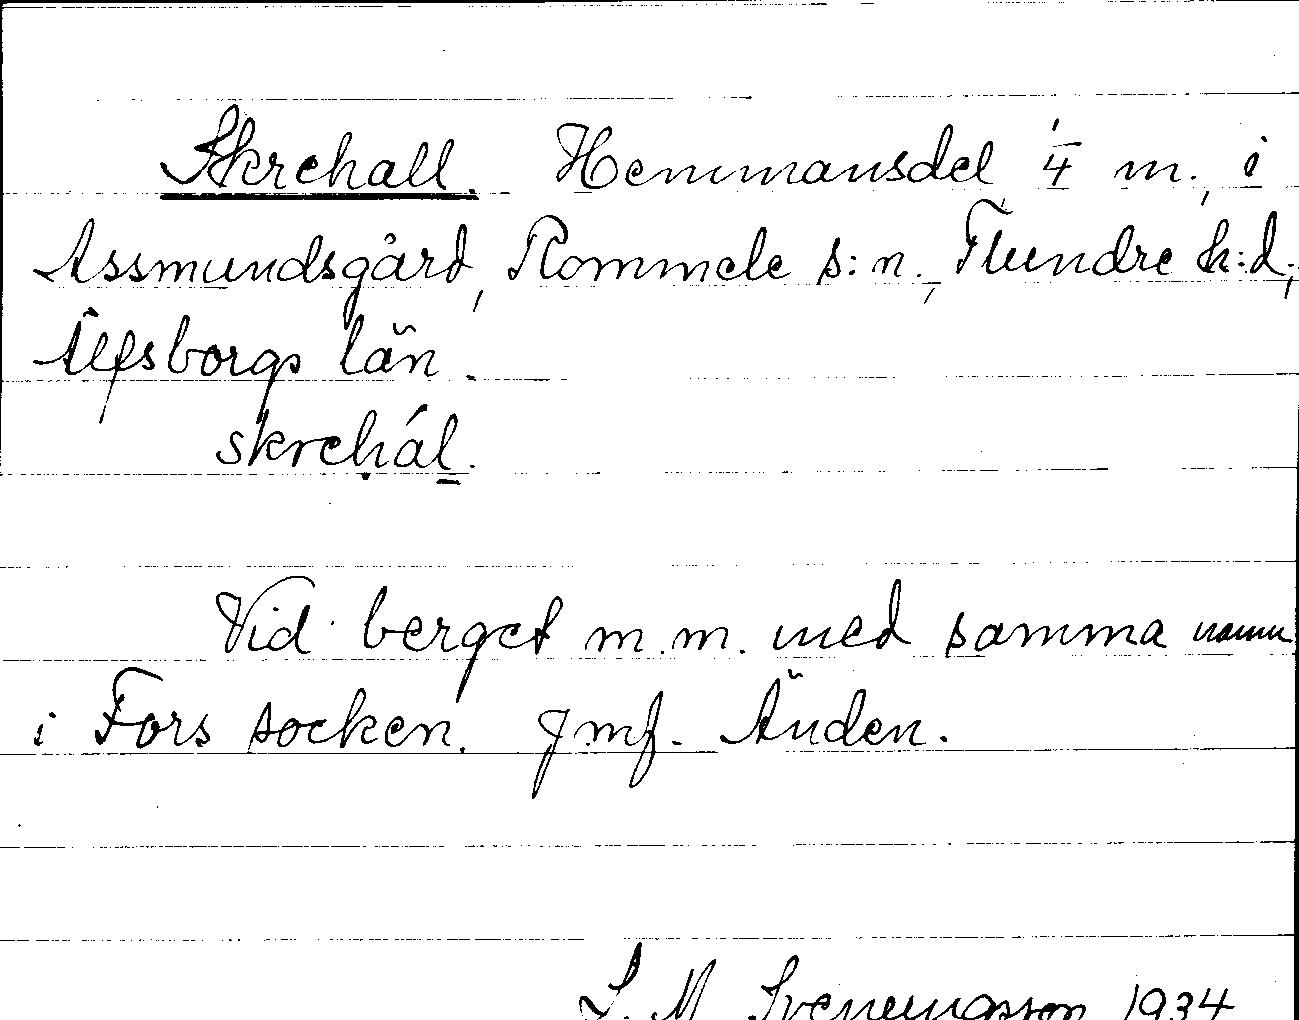 Skrehall. Hemmansdel, 1/4 m., i
Assmundsgård, Rommele s:n., Flundre h:d.,
Älfsborgs län.
skrehál.
Vid berget m.m. med samma namn
i Fors socken. Jmf. Änden.
S. M. 1934